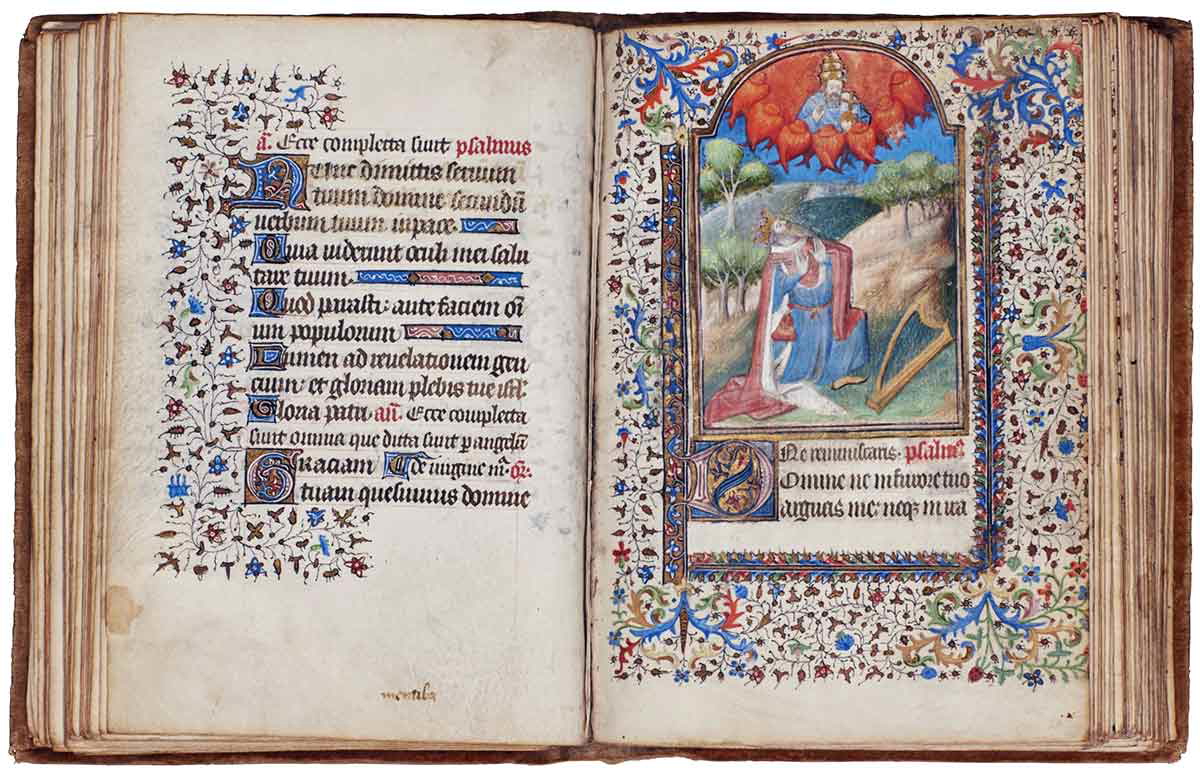 a. Ecce completta sunt psalmus
Nunc dimittis seruum
tuum domine secundū
uerbum tuum in pace.
Quia uiderunt oculi mei salu
tare tuum.
Quod parasti: ante faciem om̄
iū populorum
Lumen ad reuelationem gen
cium: et gloriam plebis tue isrl.
Gloria patri. añ. Ecce completta
sunt omnia que dicta sunt p angelū
Graciam De uirgine m̄. or̄.
tuam quesumus domine
mentibꝫ
Ne reminiscaris. psalmꝰ
Domine ne in furore tuo
arguas me: neqꝫ in ira